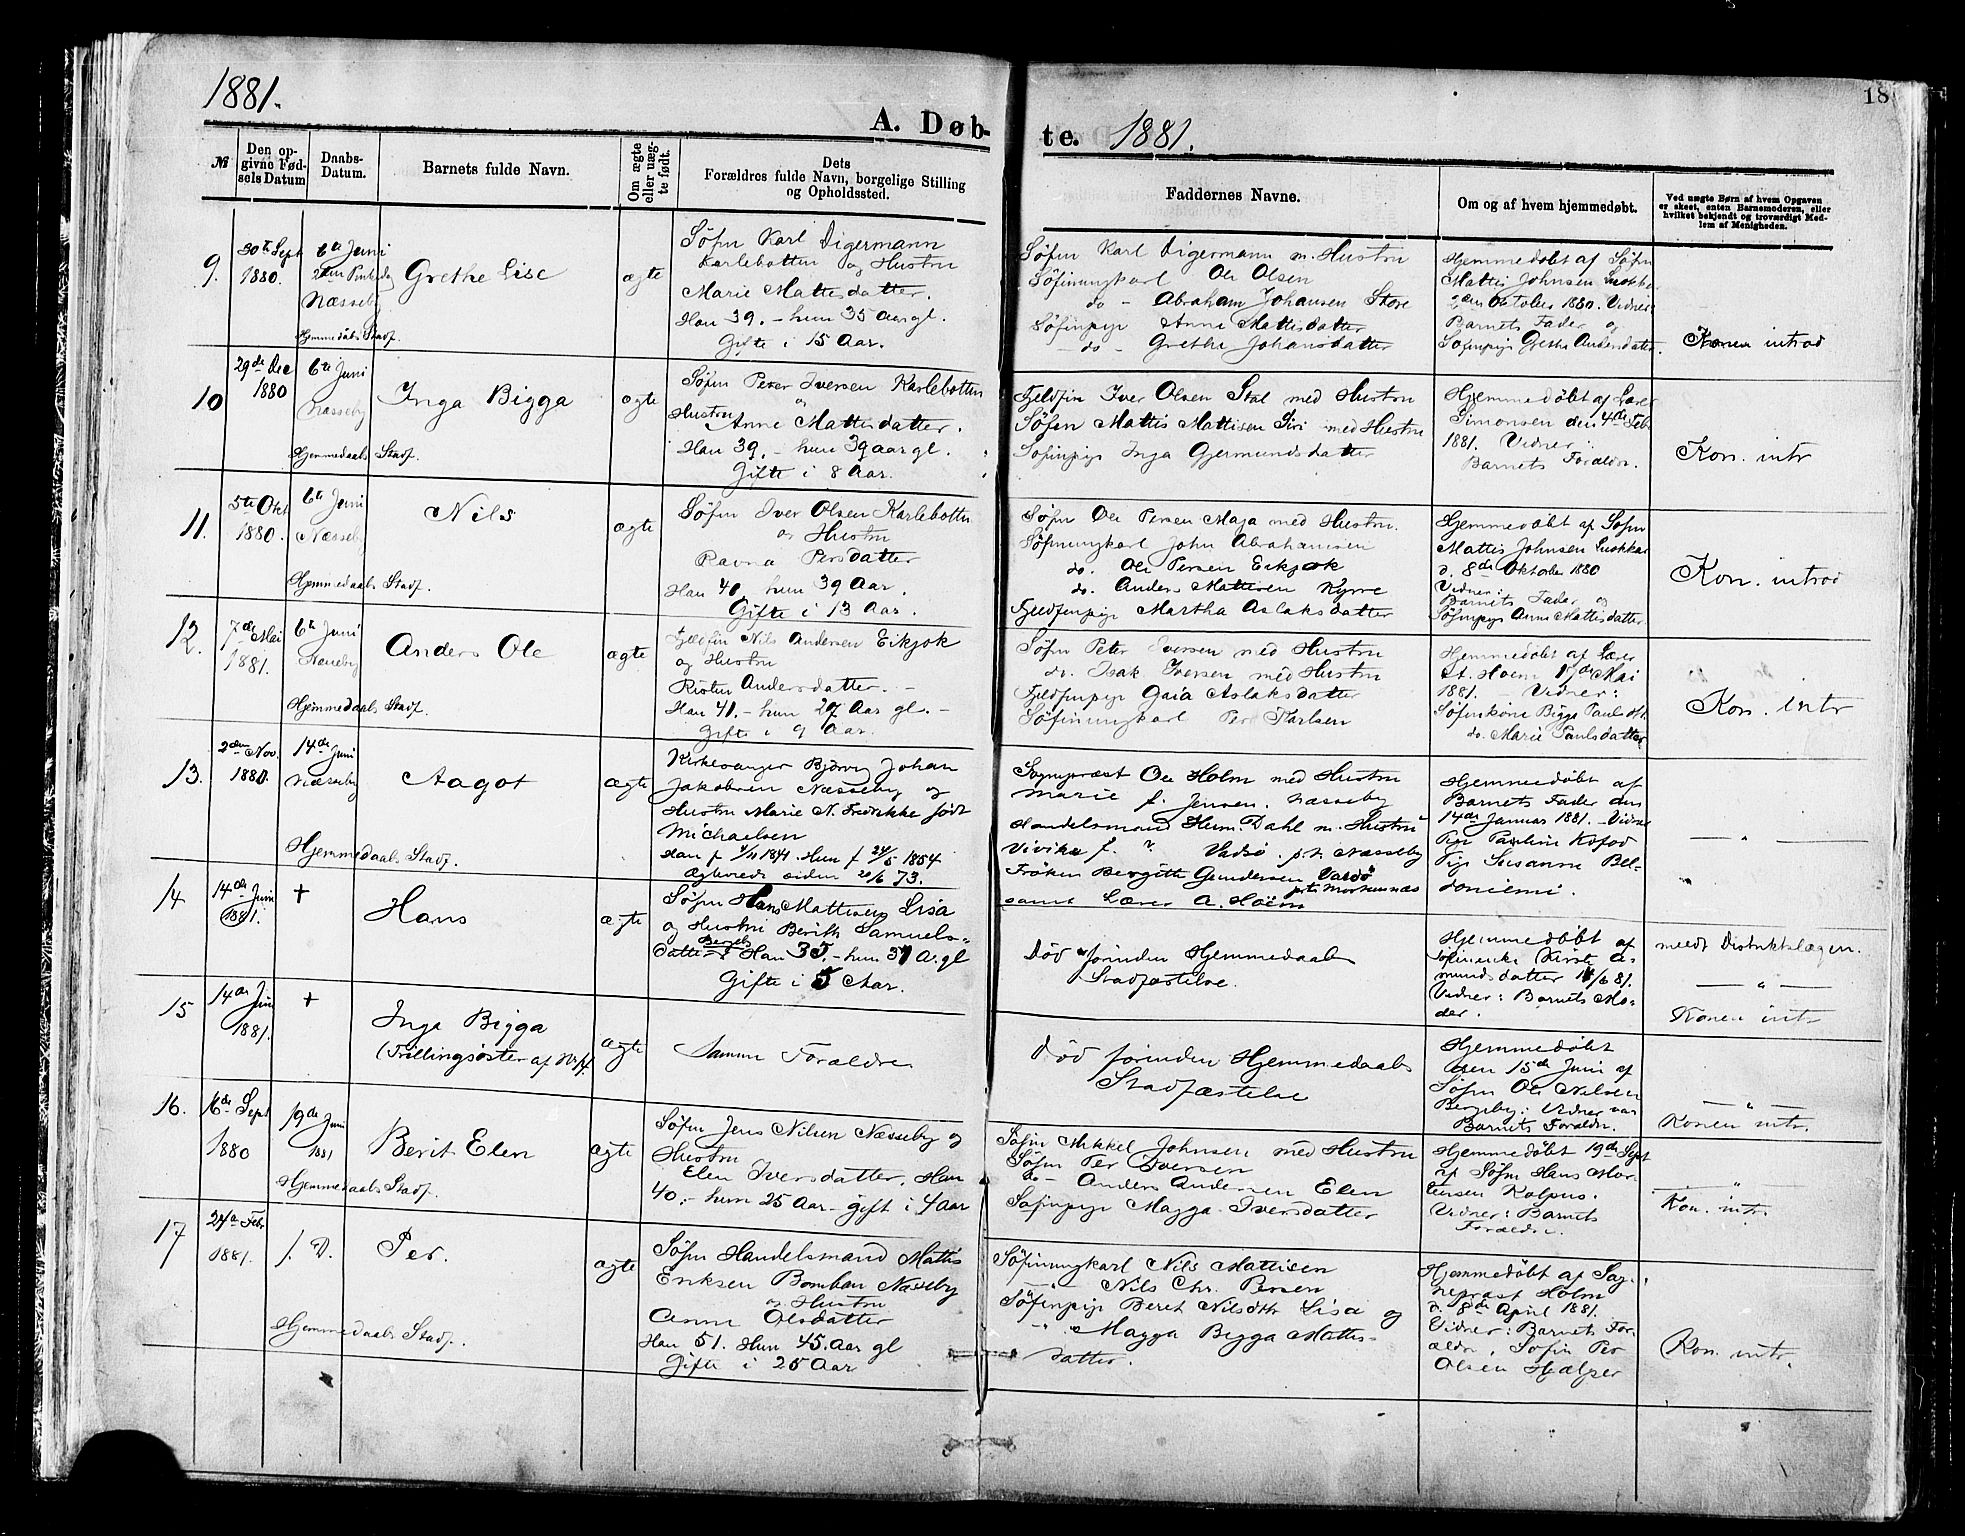 1881.
18
A. Døb-
te. 1881.
№
Den op-
givne Fød-
sels Datum
Daabs-
Datum.
Barnets fulde Navn.
Om ægte
eller uæg-
te født.
Dets
Forældres fulde Navn, borgelige Stilling
og Opholdssted.
Faddernes Navne.
Om og af hvem hjemmedøbt.
Ved uægte Børn af hvem Opgaven
er skeet, enten Barnemoderen, eller
hvilket bekjendt og troværdigt Med-
lem af Menigheden.
9.
30te Sept
1880.
6te Juni
2den Pinksdag
Næsseby
Hjemmedaabs Stadf.
Grethe Lise
ægte
Søfin Karl Digermann
Karlebotten og Hustru
Marie Mattisdatter.
Han 39. – hun 35 Aar gl.
Gifte i 15 Aar.
Søfin Karl Digermann m. Hustru
Søfinungkarl Ole Olsen
do – Abraham Johansen Store
Søfinpige Anne Mattisdatter
– do – Grethe Johansdatter
Hjemmedøbt af Søfin
Mattis Johnsen
2den Oktober 1880. Vidner
Barnets Fader og
Søfinpige Grethe Andersdatter.
Konen introd
10
29de Dec
1880
6te Juni
Næsseby
Hjemmedaabs Stadf.
Inga Bigga
ægte
Søfin Peter Iversen Karlebotten
og
Hustru Anne Mattisdatter.
Han 39. – hun 39 aar gl.
Gifte i 8 Aar.
Fjeldfin Iver Olsen Stal med Hustru
Søfin Mattis Mattisen Siri med Hustru
Søfinpige Inga Gjermundsdatter
Hjemmedøbt af Lærer
Simonsen den 4de Feb
1881. Vidner:
Barnets Forældre.
Kon. intr
11.
5te Okt
1880.
6te Juni
Næsseby
Hjemmedaabs Stadf.
Nils
ægte
Søfin Iver Olsen Karlebotten
og Hustru
Ravna Persdatter
Han 40, hun 39 Aar.
Gifte i 13 Aar.
Søfin Ole Persen Maja med Hustru.
Søfinungkarl John Abrahamsen
do. Ole Persen Eikjok
do. Anders Mattisen Kyrre
Fjeldfinpige Martha Aslaksdatter
Hjemmedøbt af Søfin
Mattis Johnsen
d. 8de Oktober 1880
Vidner:
Barnets Fader og
Søfinpige Anne Mattisdatter
Kon. introd
12.
7de Mai
1881.
6te Juni
Næsseby
Hjemmedaabs Stadf.
Anders Ole
ægte
Fjeldfin Nils Andersen Eikjok
og Hustru
Risten Andersdatter. –
Han 41. – hun 27 Aar gl. –
Gifte i 9 Aar.
Søfin Peter Iversen med Hustru
do. Isak Iversen med Hustru
Fjeldfinpige Gaia Aslaksdatter
Søfinungkarl Per Karlsen
Hjemmedøbt af Lærer
A. Hoem 17de Mai
1881. – Vidner:
Søfinkone Bigga Pauls dt.
do. Marie Paulsdatter
Kon. intr
13.
2den Nov.
1880.
14de Juni
Næsseby
Hjemmedaabs Stadf.
Aagot
ægte
Kirkesanger Bjørvig Johan
Jakobsen Næsseby og
Hustru Marie N. Fredrikke født
Michaelsen
Han f 4/11 1841. Hun f 24/5 1854
Ægteviede siden 20/6 73.
Sognepræst Ole Holm med Hustru
Marie f. Jensen. Næsseby
Handelsmand Herm. Dahl m. Hustru
Vivika f. " Vadsø. p.t. Næsseby
Frøken Bergitte Gundersen Vardø
p.t. Mortensnæs
samt Lærer A. Hoem
Hjemmedøbt af
Barnets Fader den
14de Januar 1881. – Vidner
Pige Pauline Kofod
Pige Susanne Bel-
doniemi.
— " —
14
14de Juni
1881.
+
Hans
ægte
Søfin Hans Mattisen Lisa
og Hustru Berith Samuels-
datter Bergeb. Han 35. – hun 37 A. gl
Gifte i 5 Aar.
Død forinden Hjemmedaabs
Stadfæstelse.
Hjemmedøbt af
Søfinenke Kirste A-
mundsdatter 14/6 81.
Vidner: Barnets Mo-
der.
meldt Distriktslægen.
— " —
Konen intr
15
14de Juni
1881.
+
Inga Bigga
(Tvillingsøster af No 14.
ægte
Samme Forældre
Død forinden Hjemmedaabs
Stadfæstelse
Hjemmedøbt
den 15de Juni af
Søfin Ole Nilsen
Bergeby: Vidner var
Barnets Forældre.
— " —
Konen intr.
16.
16de Sept
1880
19de Juni
1881
Hjemmedaabs Stadf.
Berit Elen
ægte
Søfin Jens Nilsen Næsseby og
Hustru
Elen Iversdatter. Han
40. – hun 25 Aar – gift i 4 aar
Søfin Mikkel Johnsen med Hustru
Søfin Per Iversen
do – Anders Andersen Elen
Søfinpige Magga Iversdatter
Hjemmedøbt 19de Sept
af Søfin Hans Mor-
tensen Kolpus.
Vidner: Barnets
Forældre.
— " —
Kon. intr.
17
24de Febr.
1881.
f. D.
Hjemmedaabs Stadf.
Per.
ægte
Søfin Handelsmand Mattis
Eriksen Bomban Næsseby
og Hustru
Anne Olsdatter
Han 51. Hun 45. Aar gl
Gifte i 25 Aar
Søfinungkarl Nils Mattisen
— " — Nils Chr. Persen
Søfinpige Beret Nilsdtr Lisa og
– " – Magga Bigga Mattis-
datter.
Hjemmedøbt af Sog-
nepræst Holm
d. 8de April 1881.
Vidner: Barnets For-
ældre, Søfin Per
Olsen Hjelper
Kon. intr.